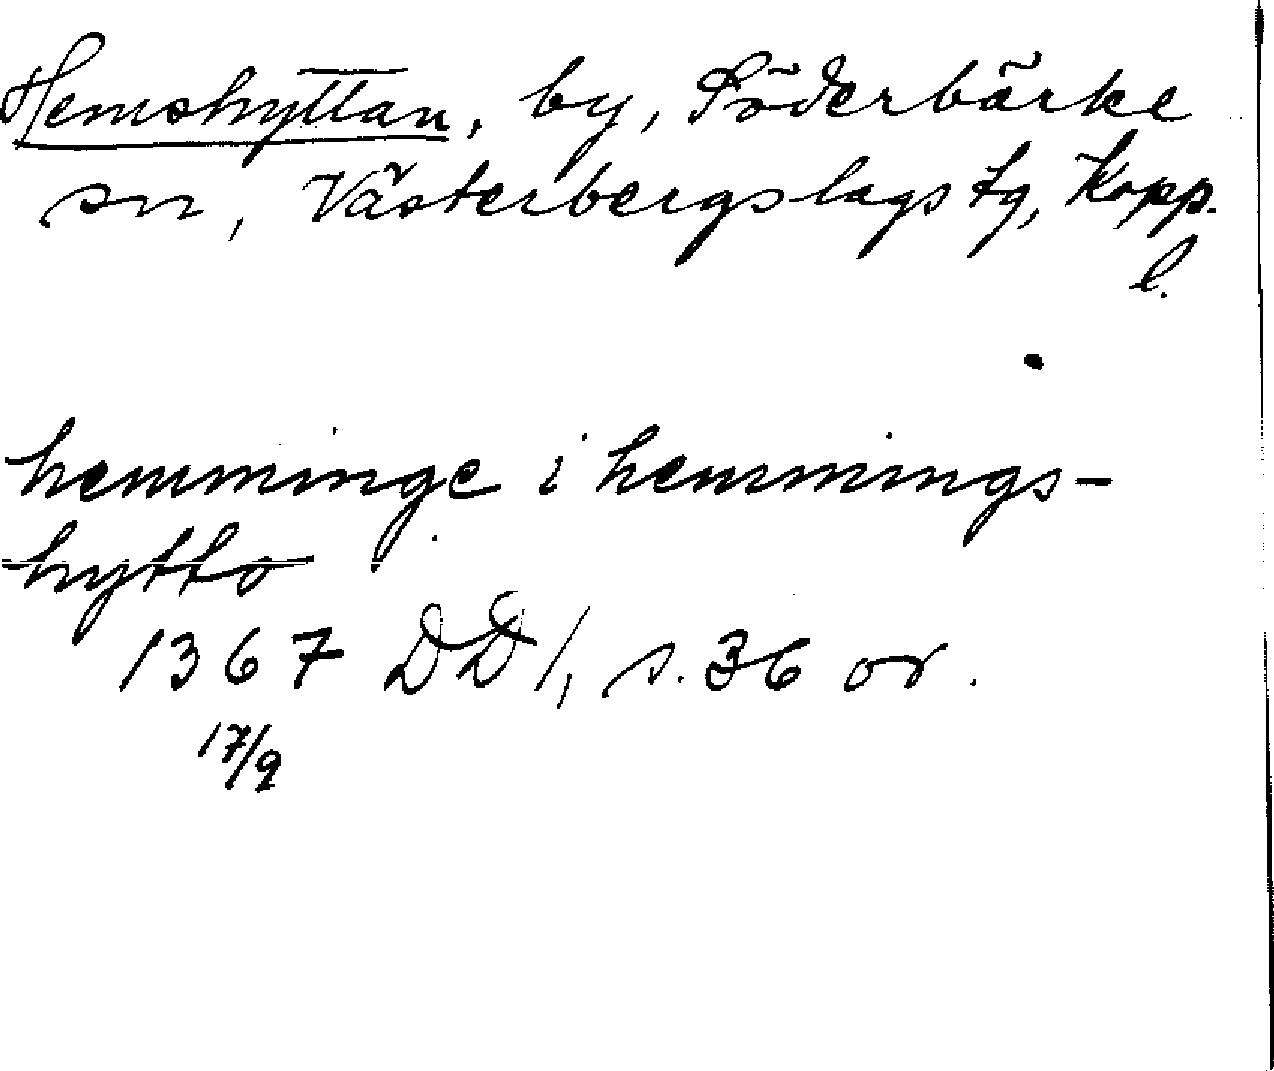 Hemshyttan, by, Söderbärke
sn, Västerbergslags tg, Kopp.
l.
hemminge i hemmings-
hytto
1367 DD 1, s. 36 or.
17/9